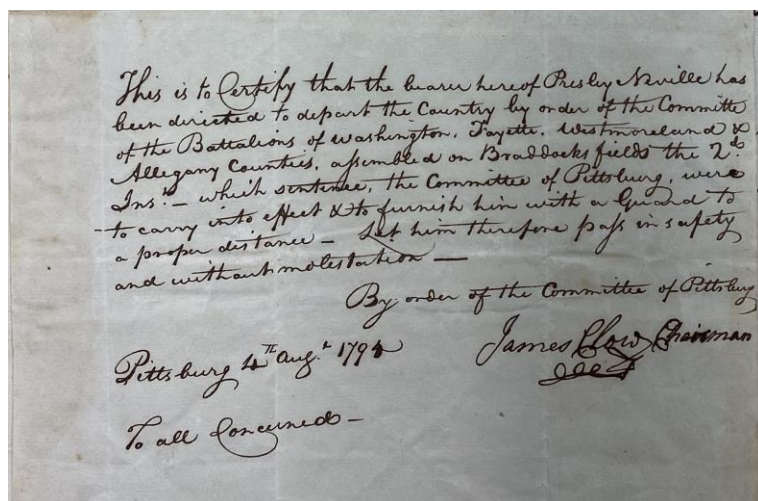 This is to Certify that the bearer hereof Presley Neville has
been directed to depart the Country by order of the Committe
of the Battalions of Washington, Fayette, Westmoreland &
Allegany Counties, assembled on Braddocks fields the 2d.
Inst. — which sentence, the Committee of Pittsburg, were
to carry into effect & to furnish him with a Guard to
a proper distance — Let him therefore pass in safety
and without molestation —
By order of the Committee of Pittsburg
James Clow Chairman
Pittsburg 4th Augt 1794
To all Concerned —